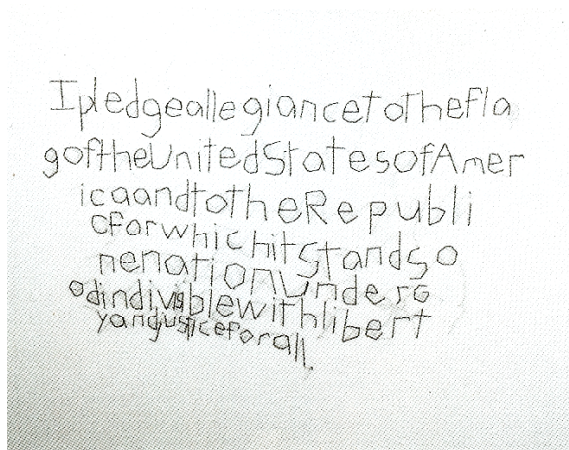 IpledgeallegiancetoThefla
goftheUnitedStatesofAmer
icaandtotheRepubli
cforwhichitstandso
nenationUnderG
odindivisiblewithlibert
yandjusticeforall.